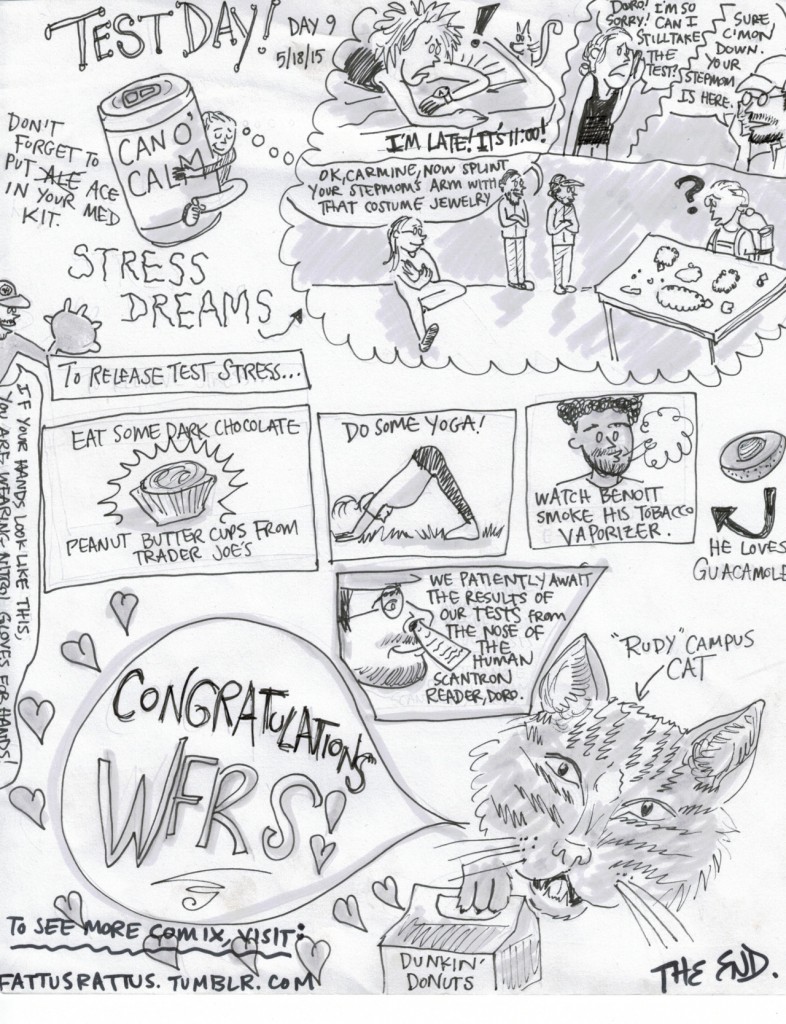 TEST DAY!
DAY 9
5/18/15
I'M LATE! IT'S 11:00!
DORO! I'M SO
SORRY! CAN I
STILL TAKE
THE
TEST?
SURE,
C'MON
DOWN.
YOUR
STEPMOM
IS HERE.
DON'T
FORGET TO
PUT ALE ACE
IN YOUR MED
KIT.
CAN O'
CALM
OK, CARMINE, NOW SPLINT
YOUR STEPMOM'S ARM WITH
THAT COSTUME JEWELRY
?
STRESS
DREAMS
TO RELEASE TEST STRESS...
IF YOUR HANDS LOOK LIKE THIS,
YOU ARE WEARING NITRIL GLOVES FOR HANDS!
EAT SOME DARK CHOCOLATE
PEANUT BUTTER CUPS FROM
TRADER JOE'S
DO SOME YOGA!
WATCH BENOIT
SMOKE HIS TOBACCO
VAPORIZER.
HE LOVES
GUACAMOLE
WE PATIENTLY AWAIT
THE RESULTS OF
OUR TESTS FROM
THE NOSE OF
THE
HUMAN
SCANTRON
READER, DORO.
"RUDY" CAMPUS
CAT
CONGRATULATIONS
WFRS
DUNKIN'
DONUTS
TO SEE MORE COMIX, VISIT:
FATTUSRATTUS.TUMBLR.COM
THE END.